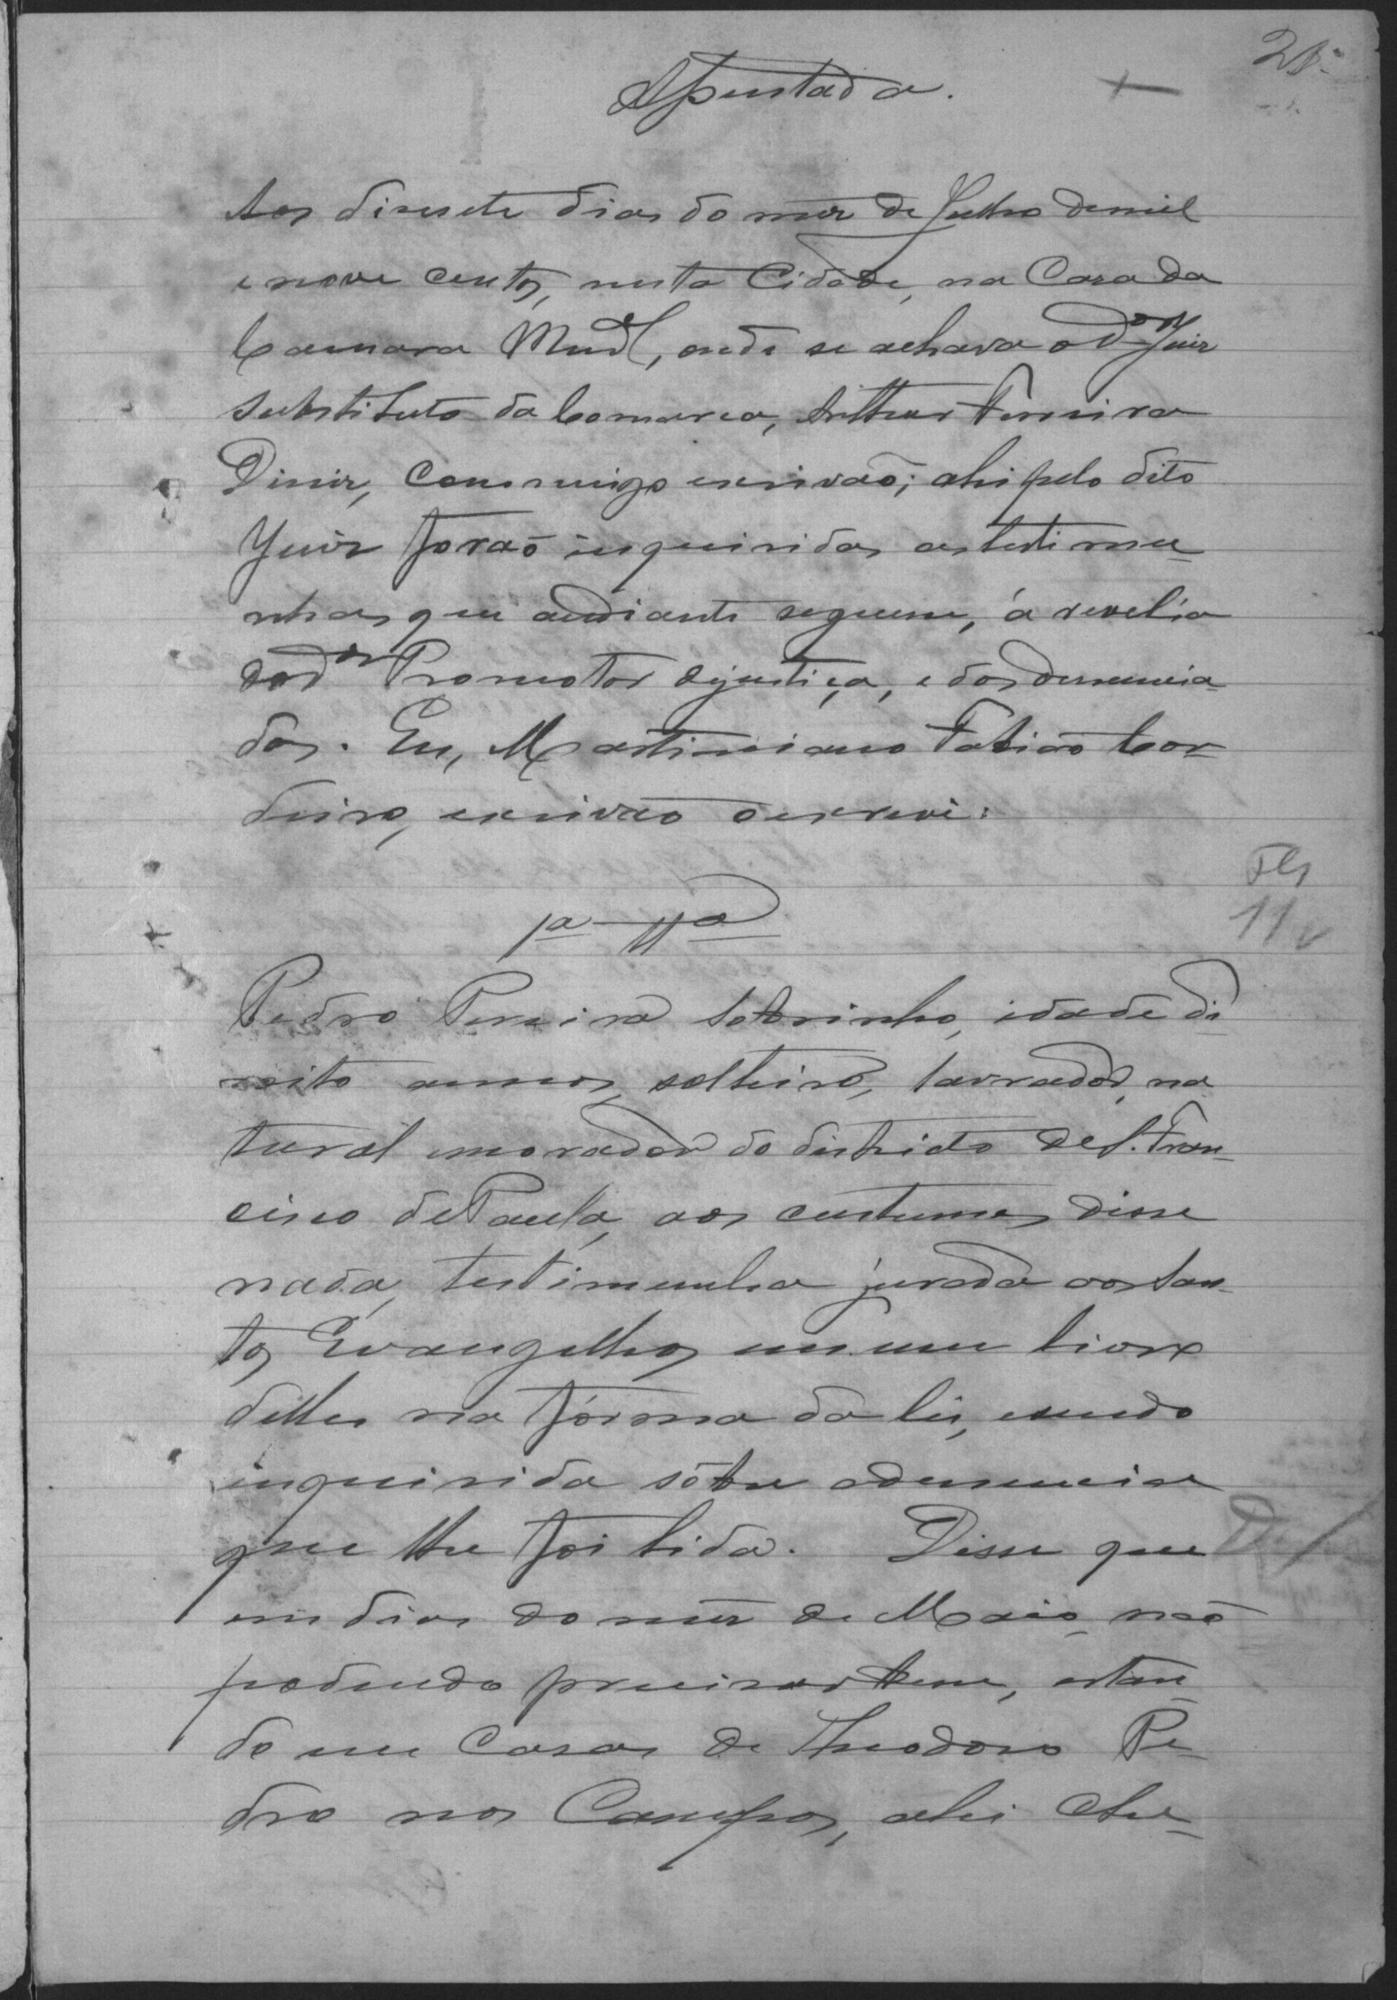 Apentada.
Aos desesete dias do mez de Julho de mil
e nove centos, nesta Cidade, na Casa da
Camara Munal, onde se achava o Dor Juiz
substituto da Comarca, Arthur Ferreira
Diniz, commigo escrivão; ahi pelo dito
Juiz forão inqueiridas as testimu-
nhas que audiante seguem, á revelia
do Dor Promotor de justiça, e dos denuncia
dos. Eu, Martiniano Fabião Cor-
deiro, escrivão o escrevi:
Fls
11v
1a Ta
Pedro Pereira Sobrinho, idade de-
zoito annos, solteiro, lavrador, na
tural e morador do districto de S. Fran-
cisco de Paula, aos custumes disse
nada, testimunha jurada aos San-
tos Evangelhos em um livro
delles na fórma da lei, e sendo
inquirida sobre a denuncia
que lhe foi lida. Disse que
em dias do mez de Maio, não
podendo precisar bem, estan-
do em Casas de Theodoro Pe-
dro nos Campos, ahi che-